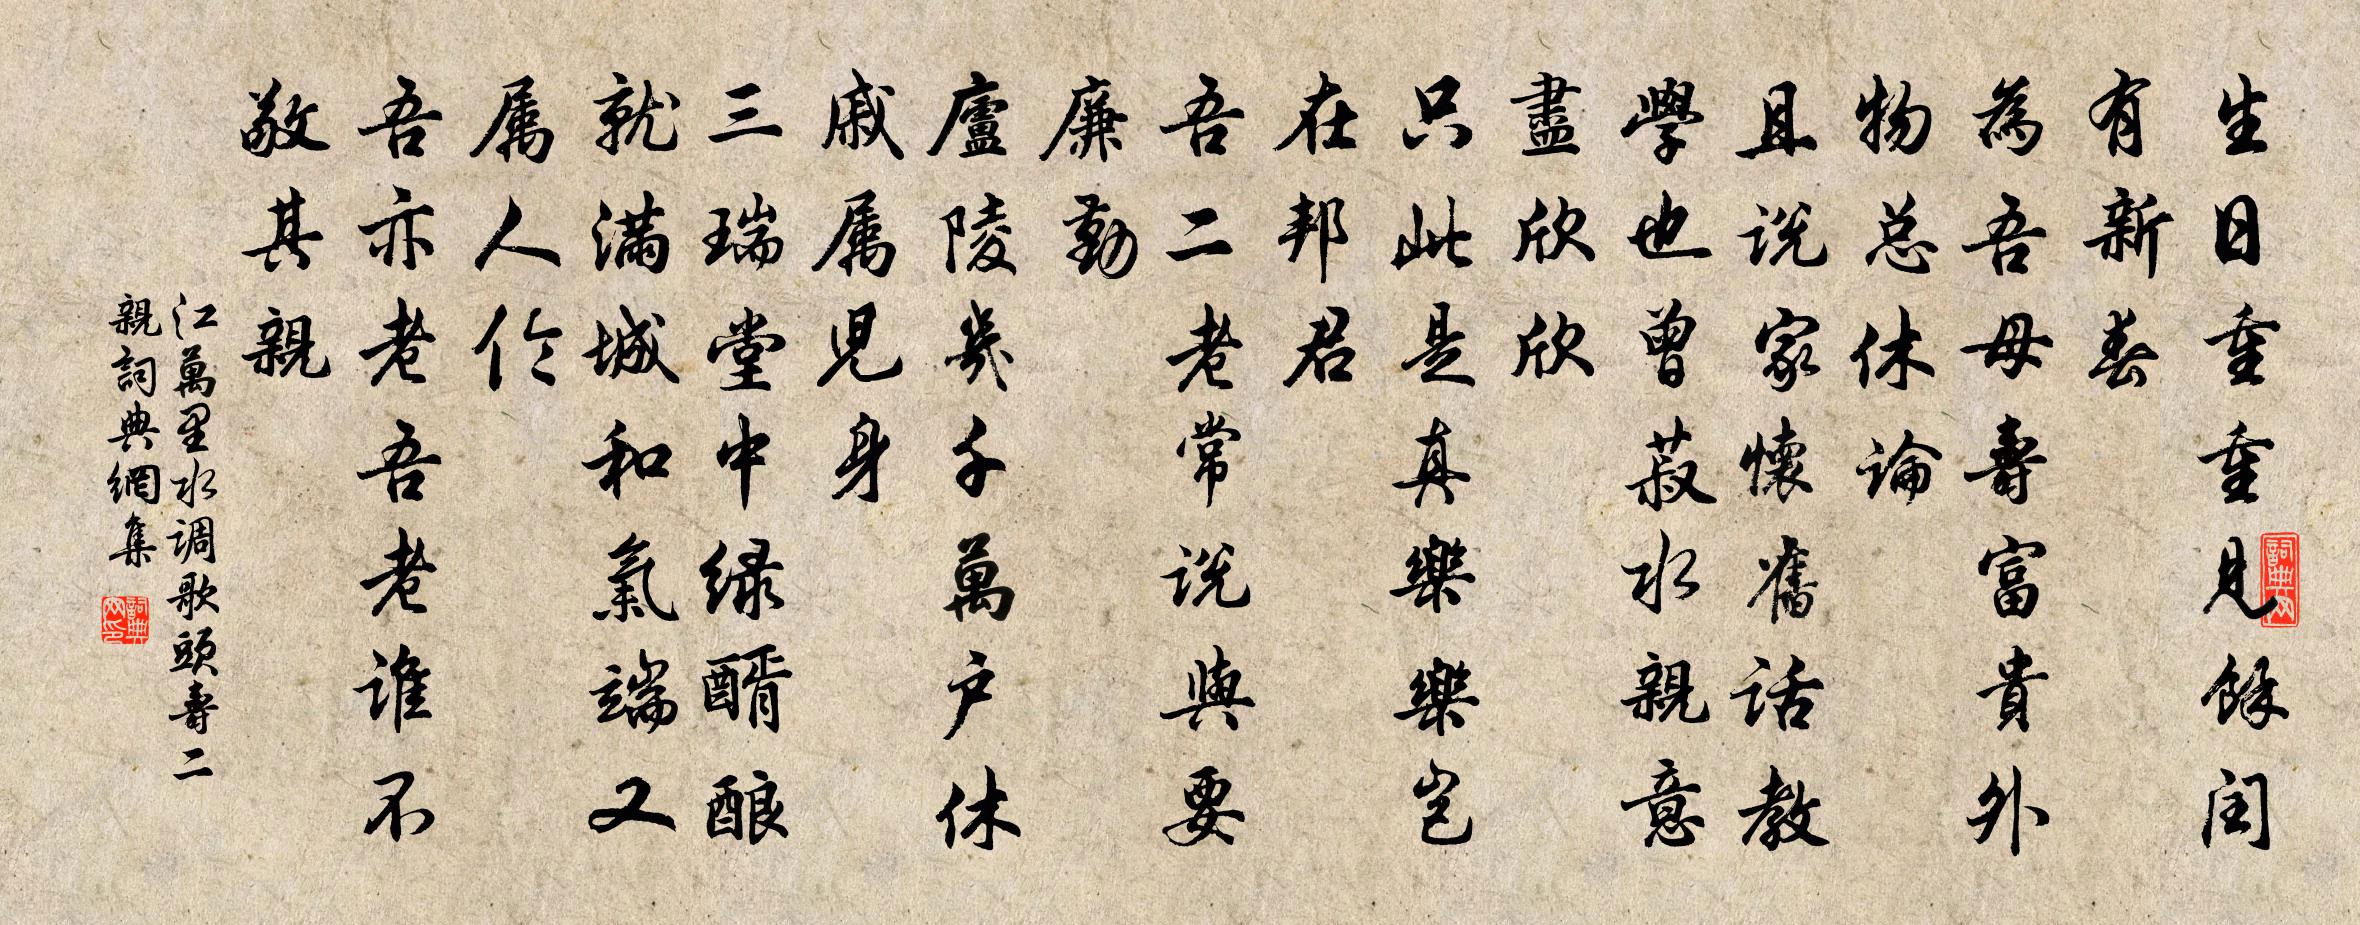 生日重重見餘閏
有新春
為吾母壽富貴外
物总休論
且说家懷舊话教
學也曾菽水親意
盡欣欣
只此是真樂樂岂
在邦君
吾二老常说與要
廉勤
廬陵幾千萬户休
戚属児身
三瑞堂中绿醑酿
就满城和氣端又
属人伦
吾亦老吾老谁不
敬其親
江萬里水调歌頭壽二
親詞典網集
詞典网
詞典网印